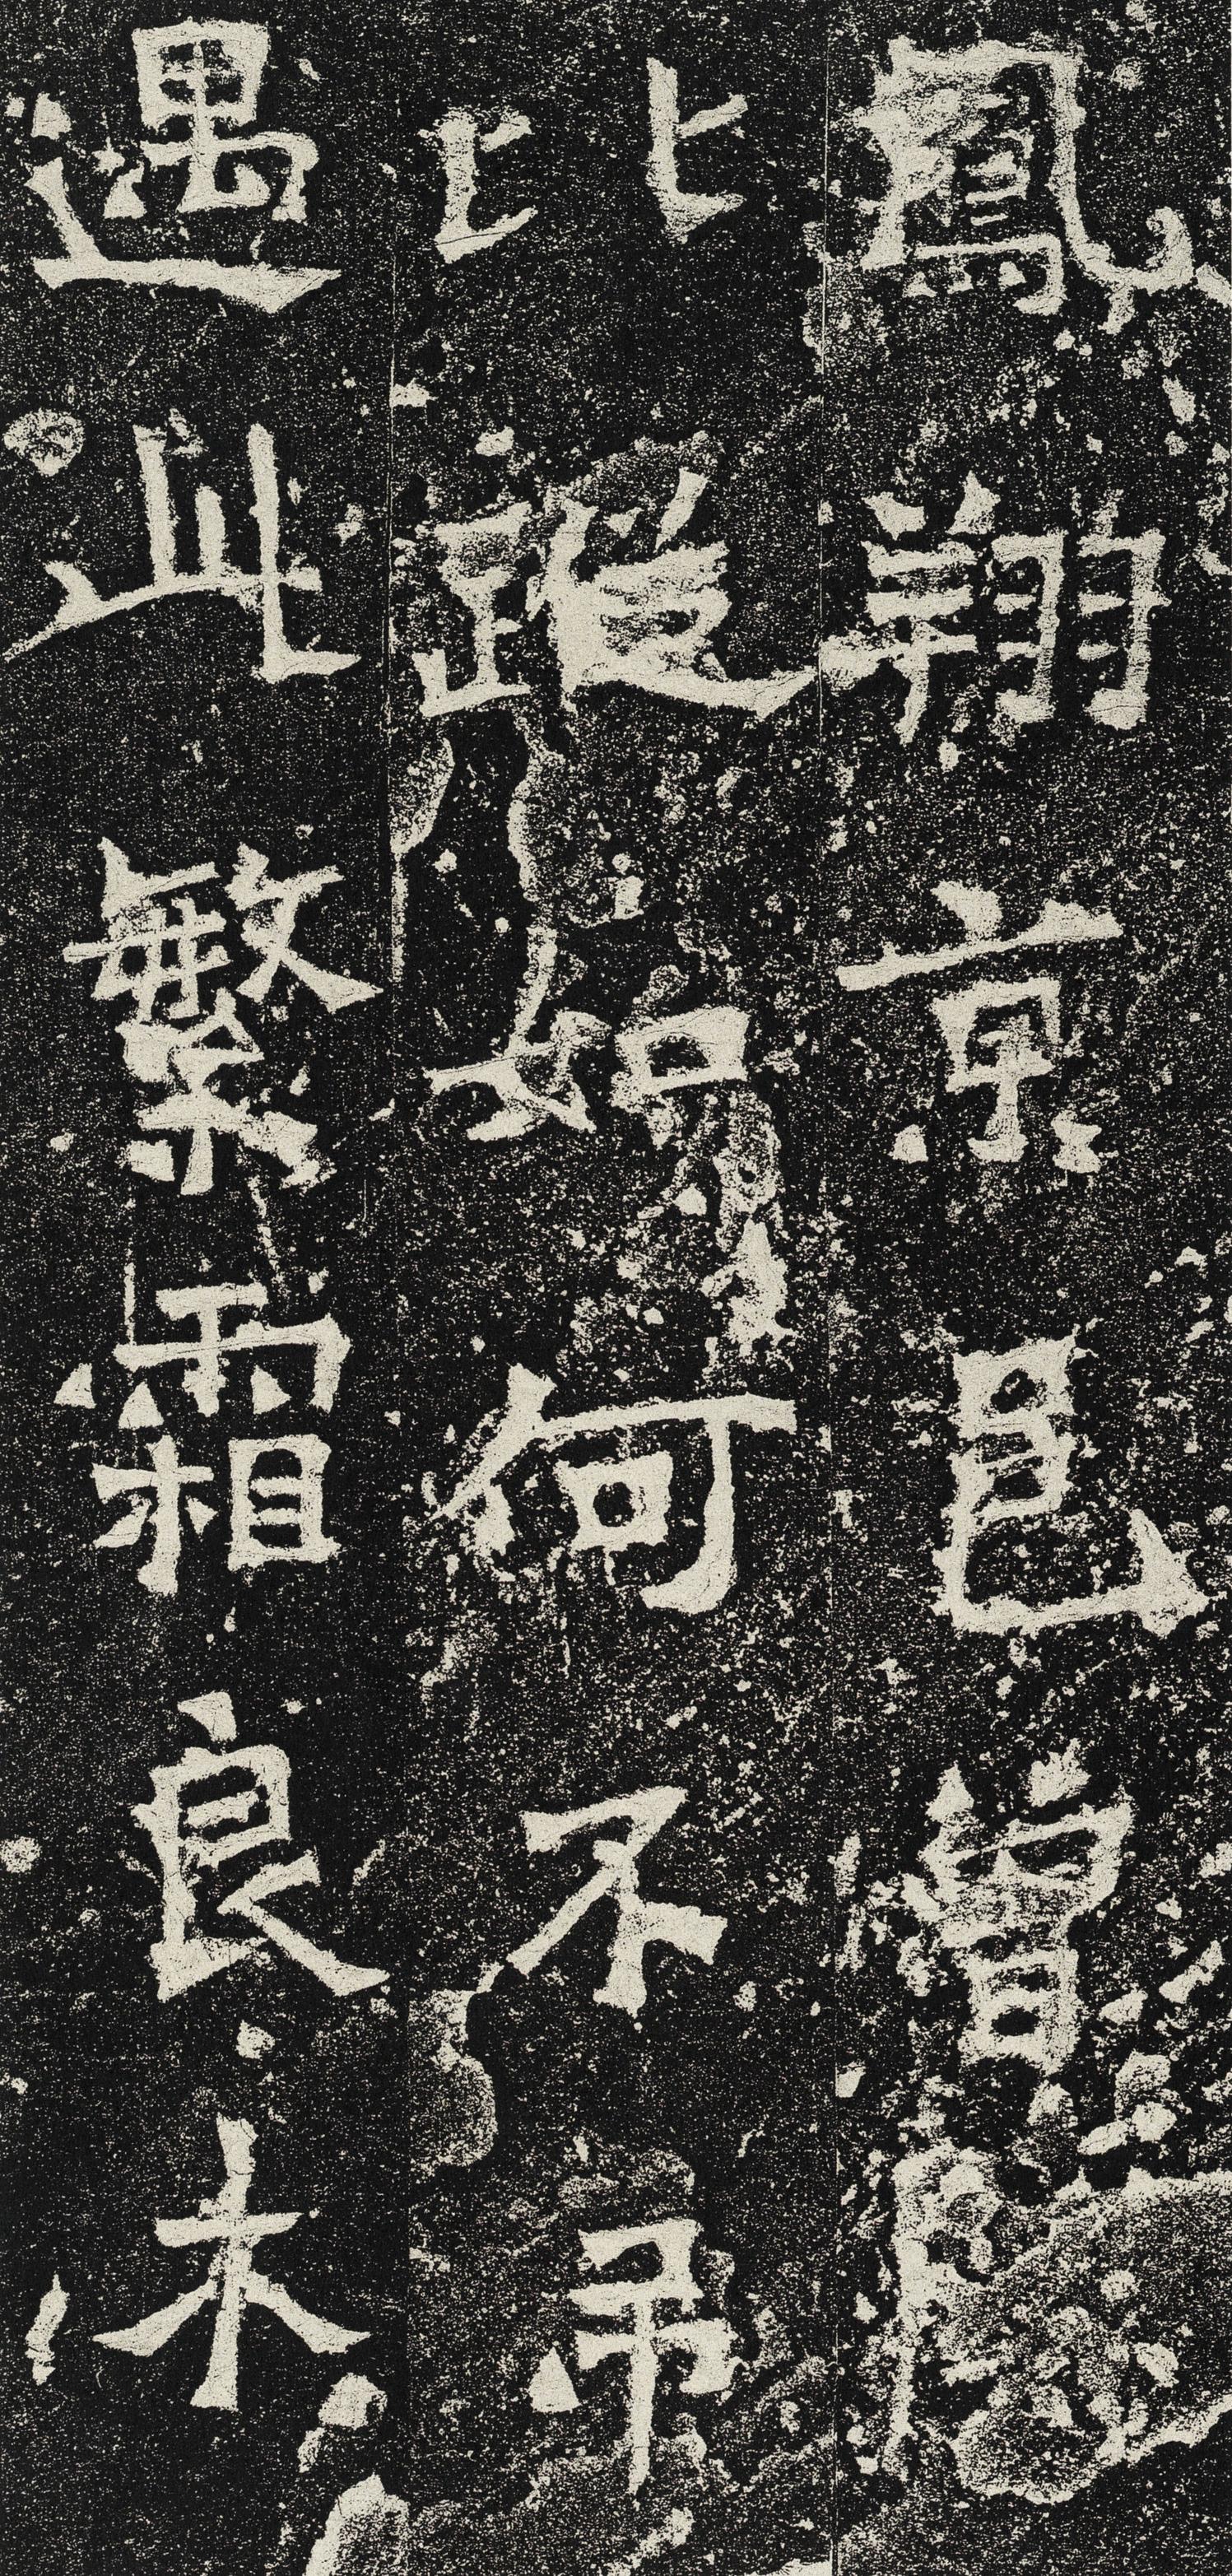 鳳翔京邑曾
比蹤如何不弔
遇此繁霜良木